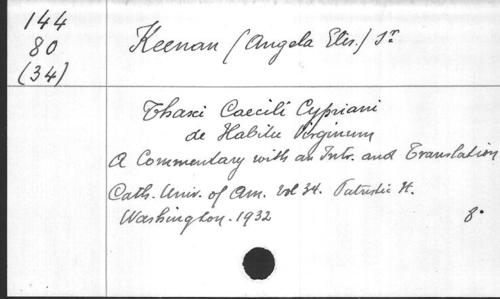 144
80
(34)
Keenan (Angela Elis.) Sr
Thasci Caecili Cypriani
de Habitu Virginum
A Commentary with an Intr. and Translation
Cath. Univ. of Am. Vol 34. Patristic St.
Washington. 1932
8.